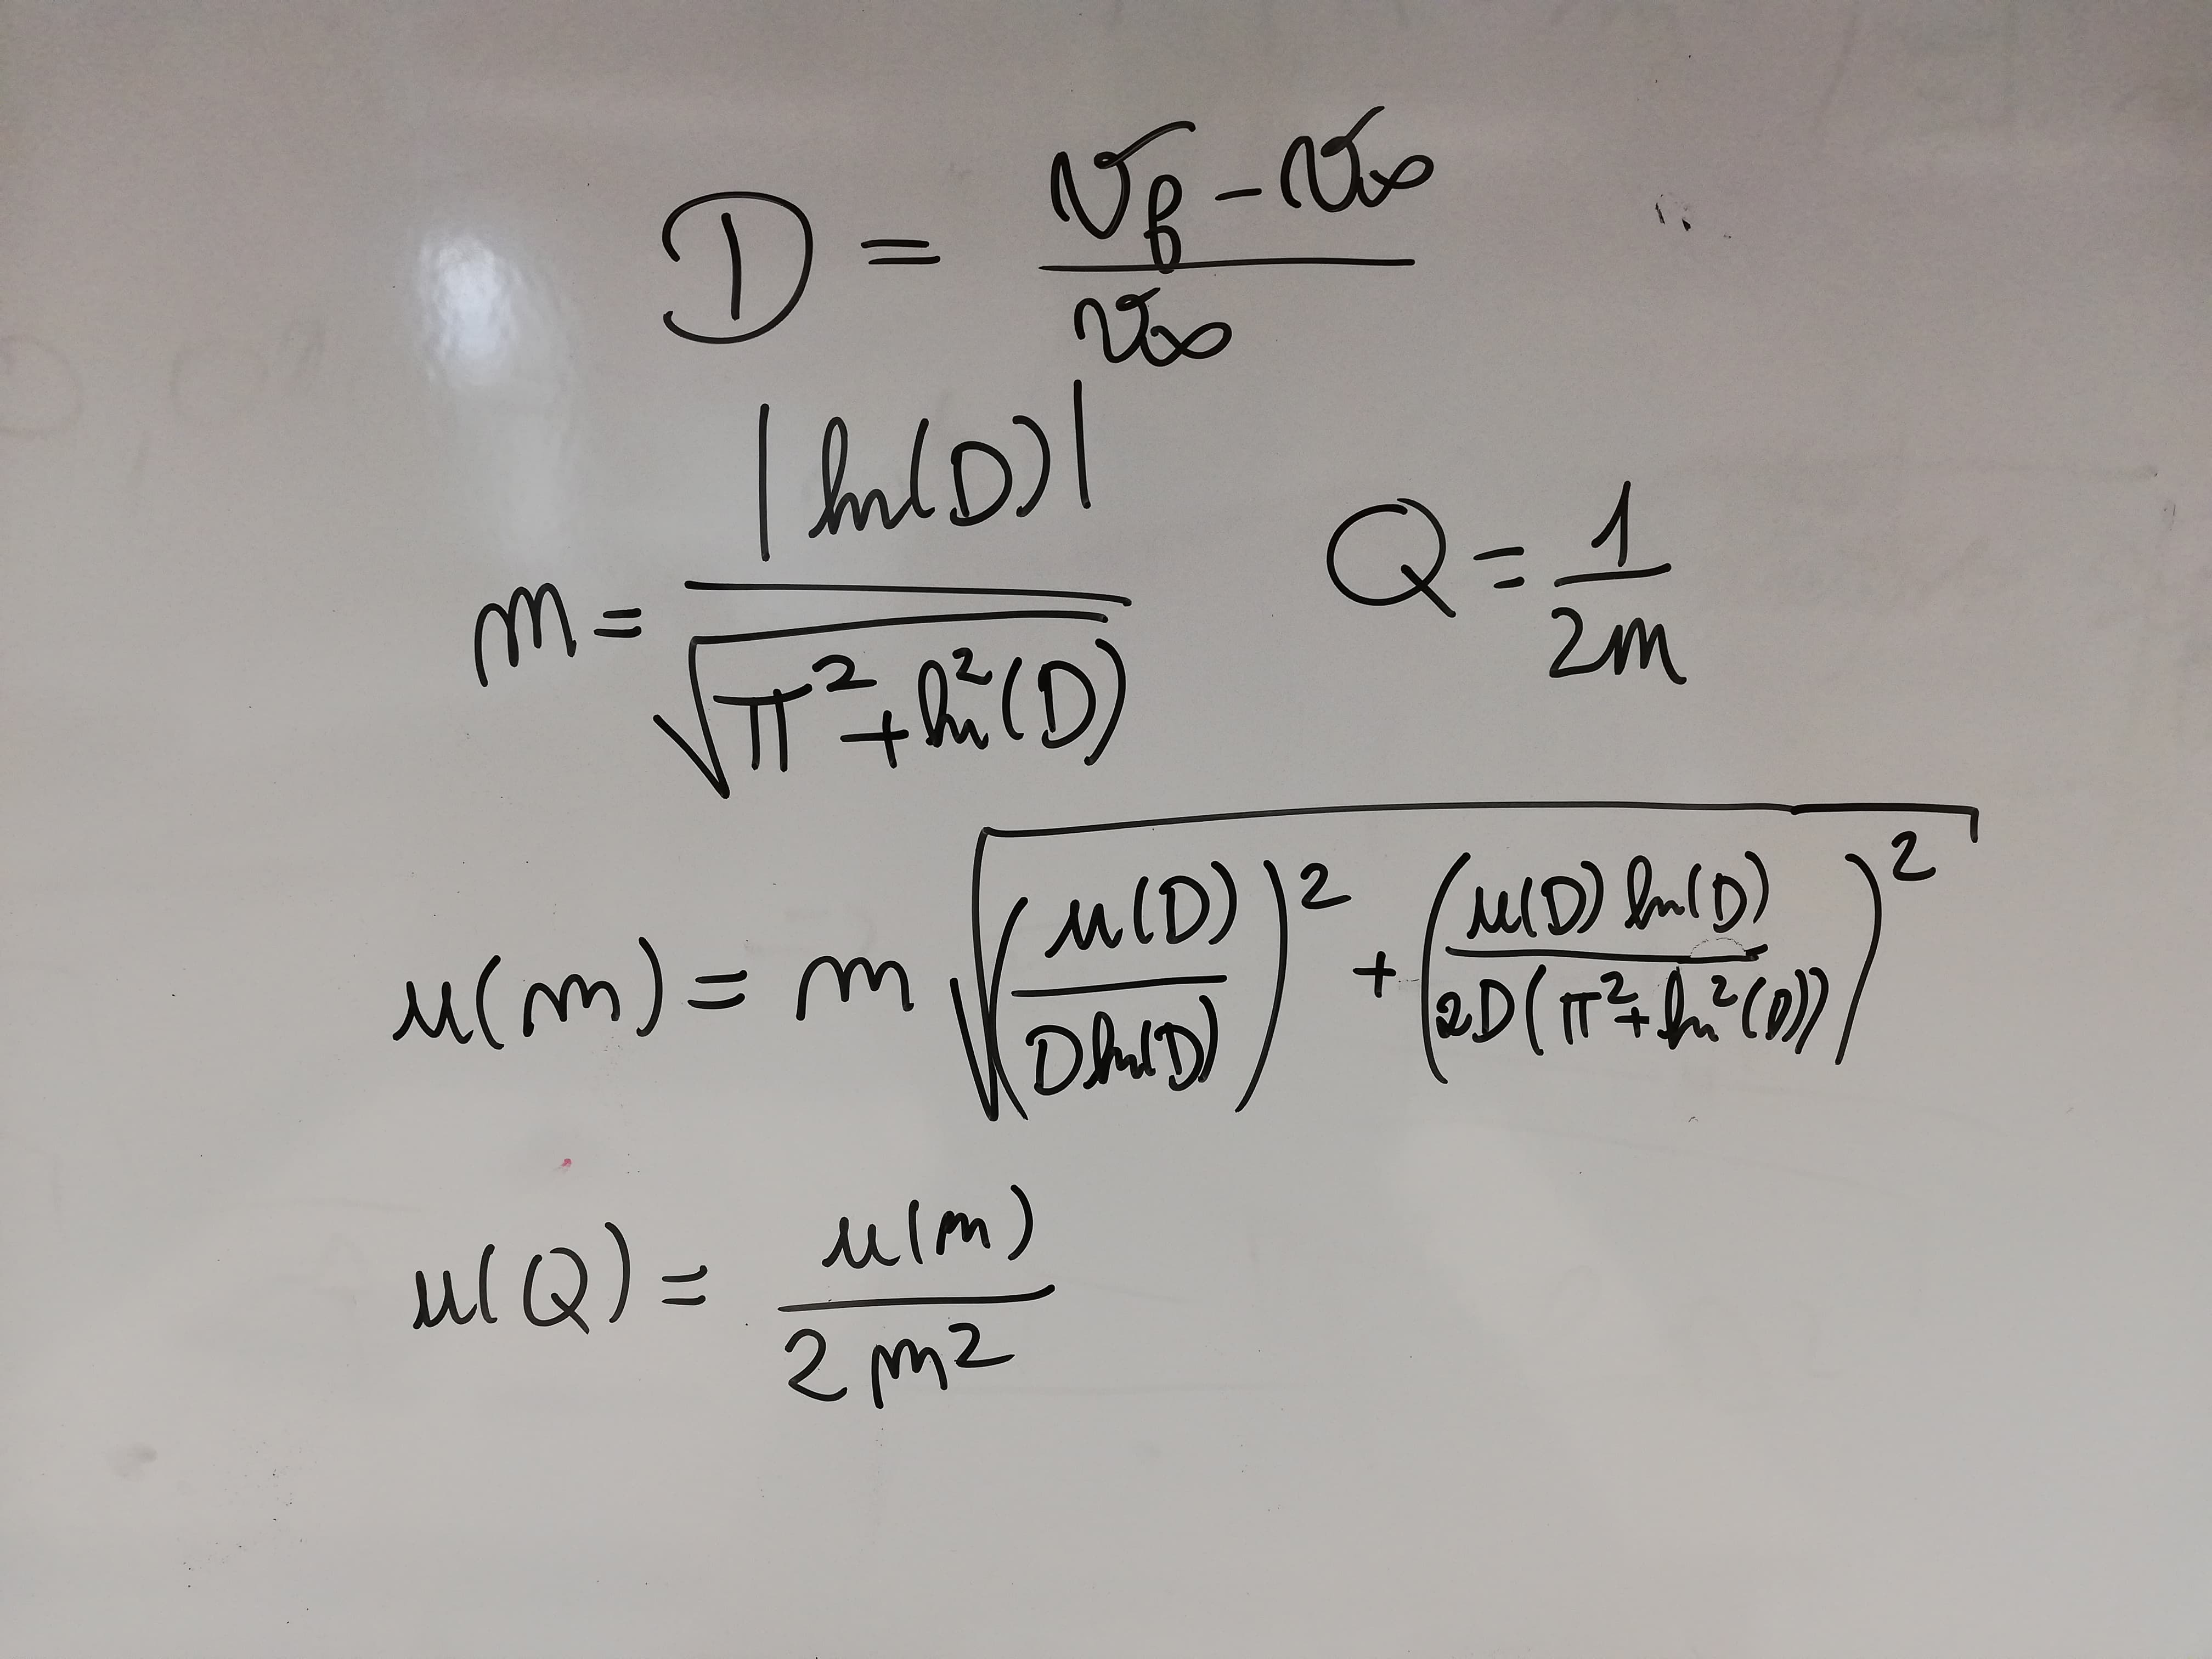 D = (v_p - v_∞) / v_∞
m = |ln(D)| / √(π² + ln²(D))
Q = 1 / 2m
u(m) = m √((u(D) / D ln(D))² + (u(D) ln(D) / 2D(π² + ln²(D)))²)
u(Q) = u(m) / 2m²